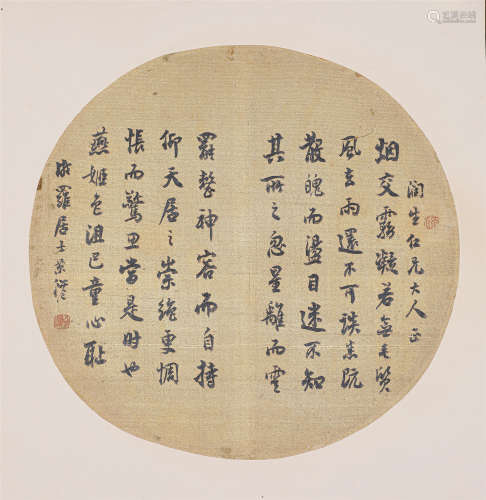 潤生仁兄大人正
烟交霧凝若無毛質
風去雨還不可談悉既
散魄而盪目迷不知
其所之忽星離而雲
罷整神容而自持
仰天居之崇絕更惆
悵而驚思當是時也
燕姬色沮巴童心恥
羅居士